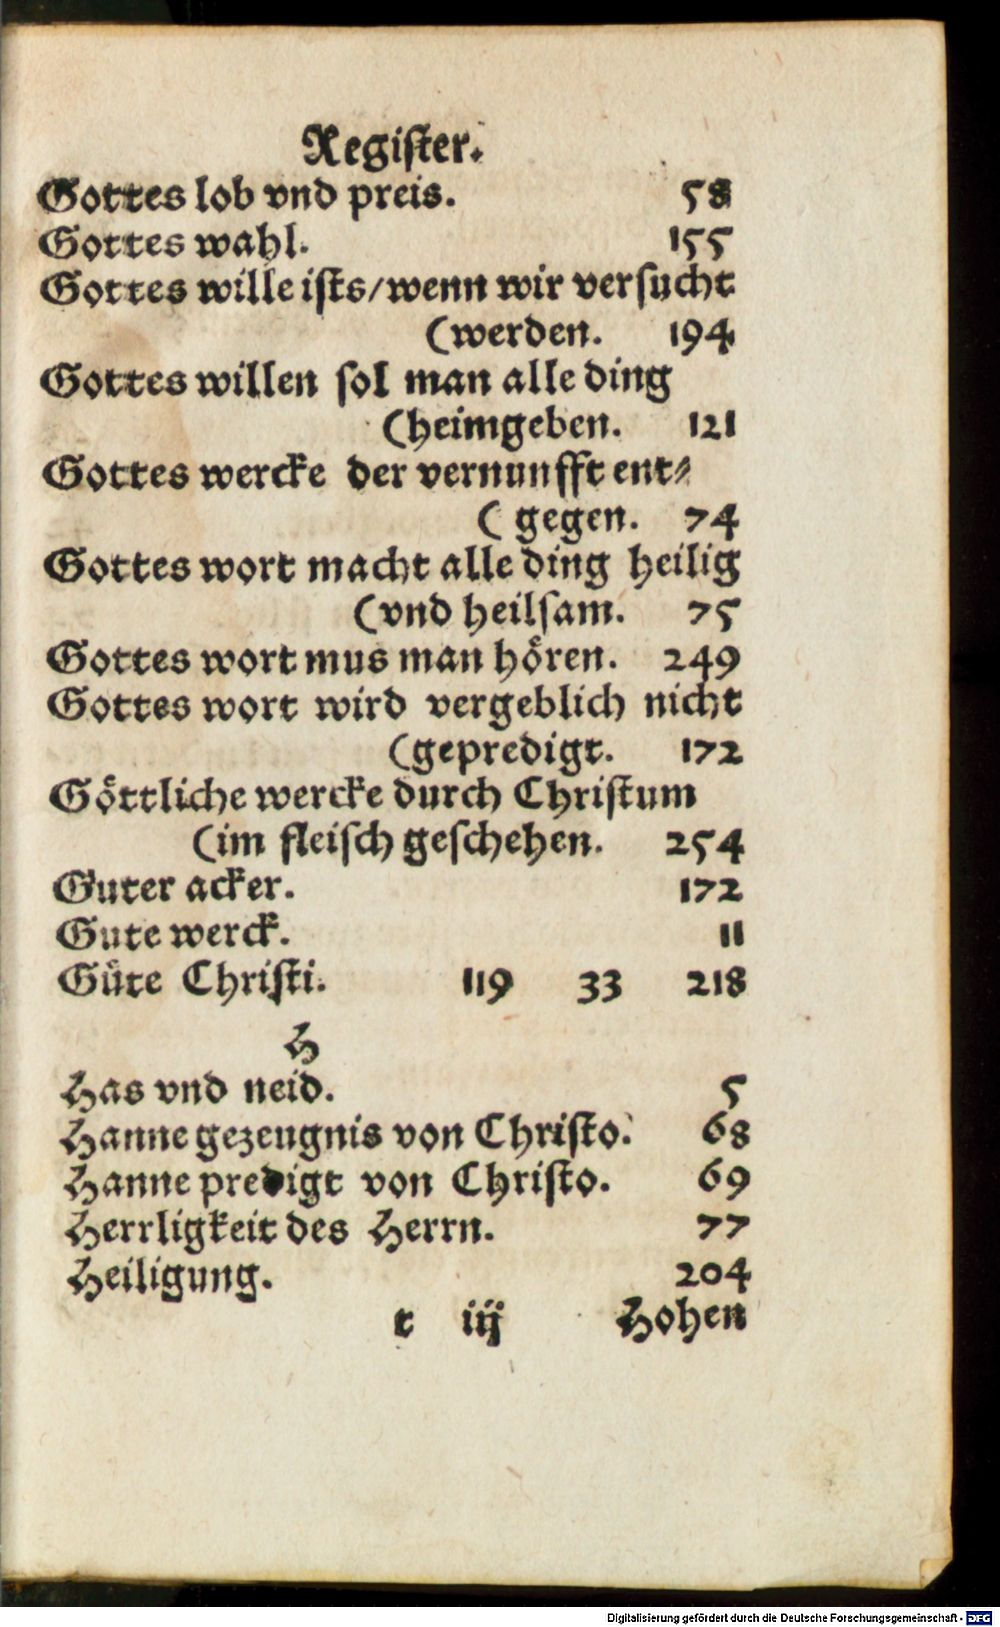 Register.
Gottes lob vnd preis. 58
Gottes wahl. 155
Gottes wille ists/wenn wir versucht
(werden. 194
Gottes willen sol man alle ding
(heimgeben. 121
Gottes wercke der vernunfft ent⸗
( gegen. 74
Gottes wort macht alle ding heilig
(vnd heilsam. 75
Gottes wort mus man hören. 249
Gottes wort wird vergeblich nicht
(gepredigt. 172
Göttliche wercke durch Christum
(im fleisch geschehen. 254
Guter acker. 172
Gute werck. 11
Güte Christi. 119 33 218
H
Has vnd neid. 5
Hanne gezeugnis von Christo. 68
Hanne predigt von Christo. 69
Herrligkeit des Herrn. 77
Heiligung. 204
t iij Hohen
Digitalisierung gefördert durch die Deutsche Forschungsgemeinschaft - DFG